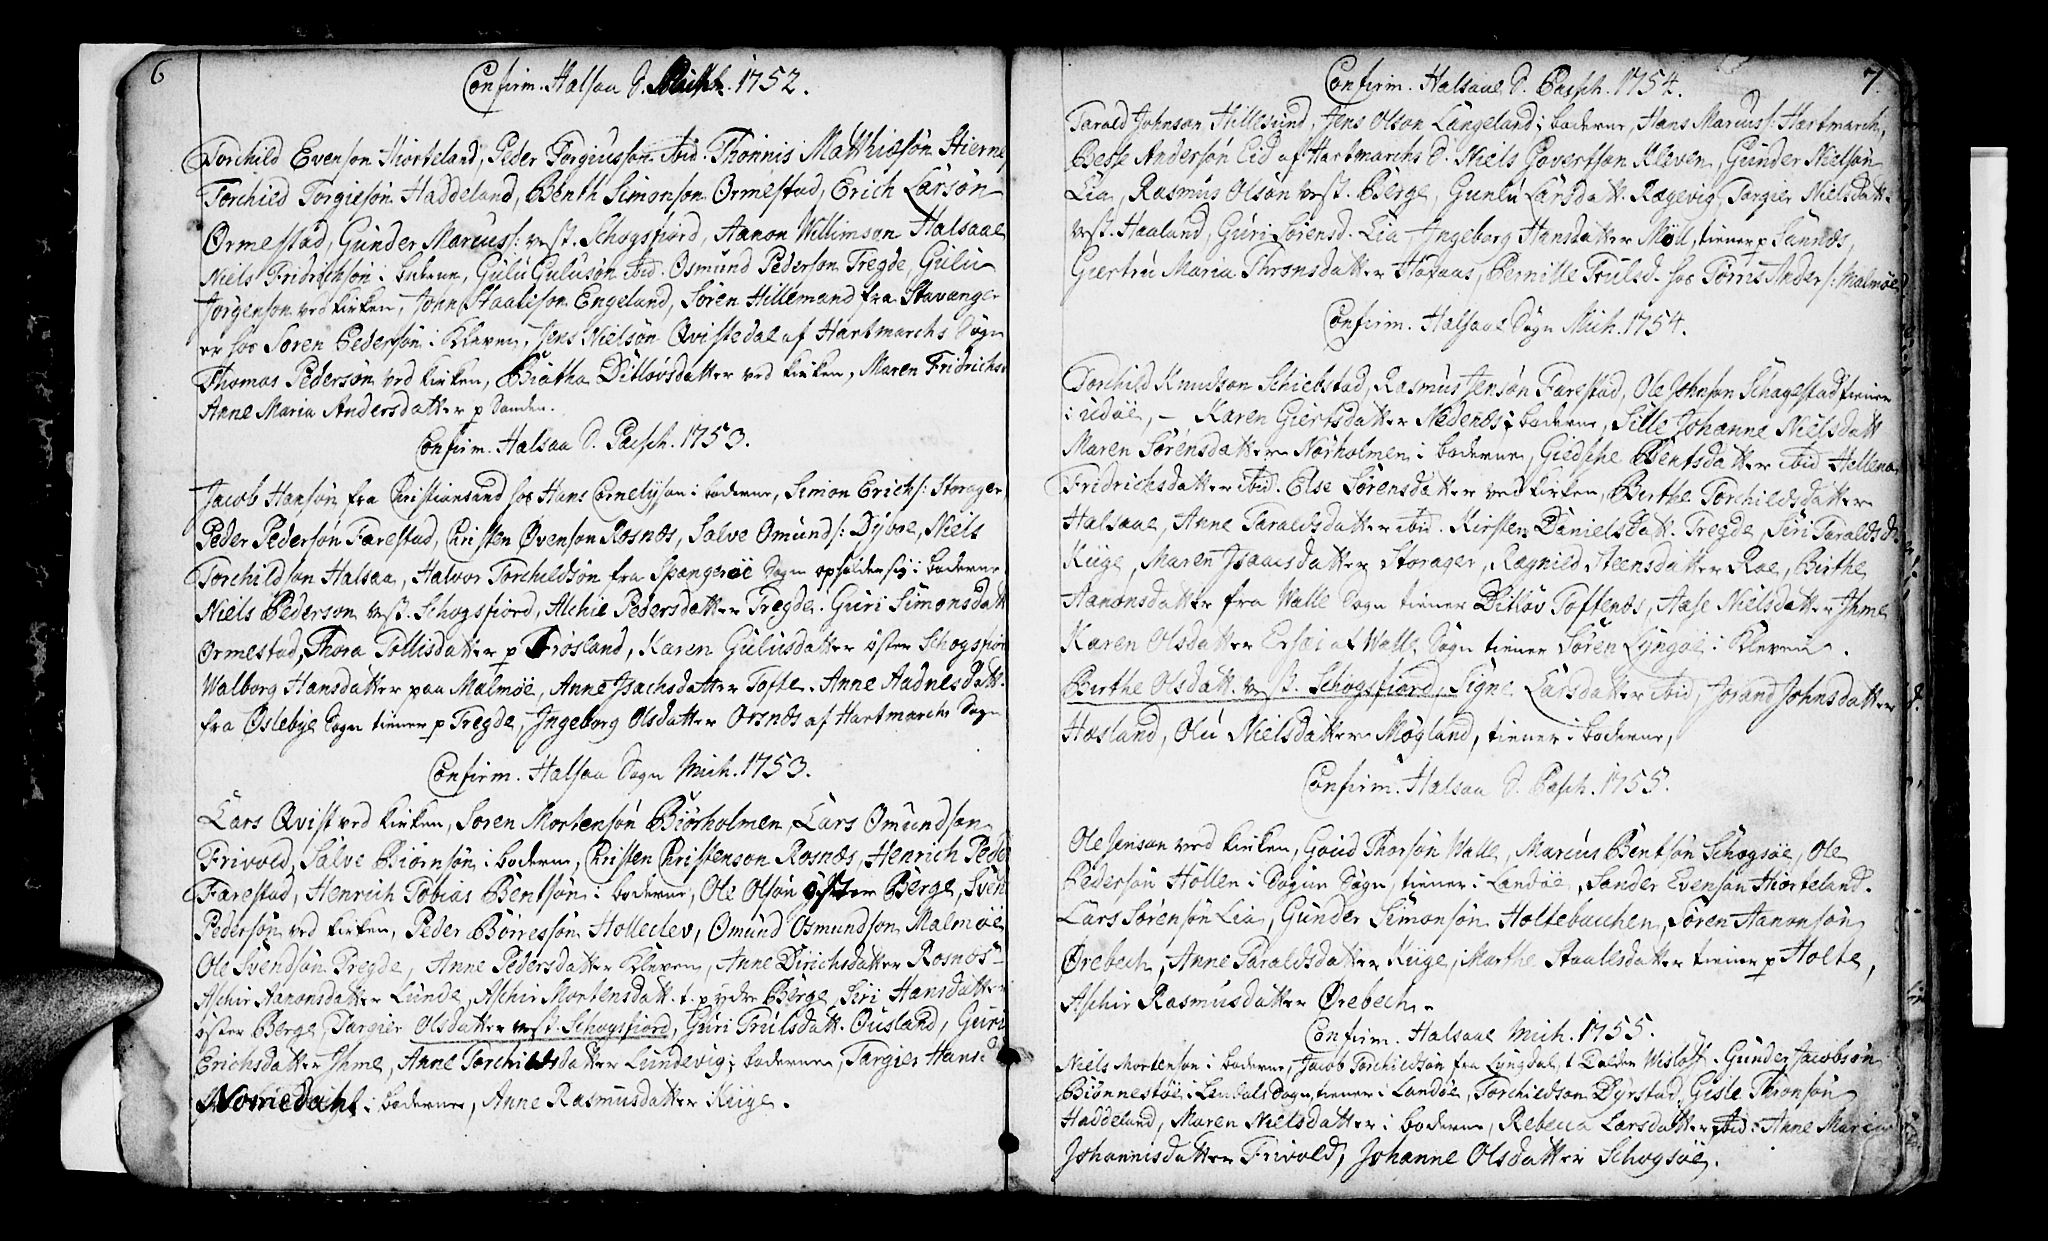 6
Confirm. Halsaa S. Mich. 1752.
Torchild Evenson Hiorteland, Peder Torgiusson ibid. Thonnis Matthiesøn Hierne
Torchild Torgiesøn Haddeland, Benth Simonson Ormestad, Erich Larsøn
Ormestad, Gunder Marcuss: vest. Schogsfiord, Aanon Willimson Halsaae
Niels Fridrichsøn i baaene, Gulu Gulusøn ibid. Osmund Pederson Tregde, Gulu
Jørgenson ved kirken, John Staalison Engeland, Søren Hillemand fra Stavanger
er hos Søren Pedersøn i Kleven, Jens Nielsøn Qvistedal af Hartmarchs Sogn
Thomas Pedersøn ved kirken, Biatha Ditløvsdatter ved kirken, Maren Fridrichs
Anne Maria Andersdatter p Sanden.
Confirm. Halsaa S. Pasch. 1753.
Jacob Hansøn fra Christiansand hos Hans Cornelyson i boderne, Simon Erichs: Storager
Peder Pedersøn Farestad, Christen Øvenson Rosnæs, Salve Omunds: Dyboe, Niels
Torchildson Halsaa, Halvor Torchildsøn fra Spangerøe Sogn opholder sig i boderne
Niels Pederson vest. Schogsfiord, Aschie Pedersdatter Tregde. Guri Simonsdatt
Ormestad, Thora Tollisdatter p Frøsland, Karen Gulusdatter øster Schogsfior
Walborg Hansdatter paa Malmøe, Anne Isachsdatter Tofte. Anne Aadnesdatt.
fra Øslebye Sogn tiener p Tregde, Ingeborg Olsdatter Orsnæs af Hartmarchs Sogn
Confirm. Halsaa Sogn Mich. 1753.
Lars Qvist ved kirken, Soren Mortensøn Biørholmen, Lars Omundson
Frivold, Salve Biørnsøn i boderne, Christen Christenson Rosnæs, Henrich Pede
Farestad, Henrich Tobias Bentsøn i boderne, Ole Olsøn øster Berge, Sven
Pedersøn ved kirken, Peder Børresson Holleclev, Omund Osmundson Malmøe
Ole Svendsøn Tregde, Anne Pedersdatter Kleven, Anne Dirichsdatter Rosnæs
Aschir Aanonsdatter Lunde, Aschir Mortensdatt. t. p ydre Berge, Siri Hansdatter
øster Berge, Targier Olsdatter vest. Schogsfiord, Guri Trulsdatt. Ousland, Guri
Erichsdatter Ihme, Anne Torchildsdatter Lundevig i boderne, Targier Hansd
Nomedahl i boderne, Anne Rasmusdatter Kiige.
7.
Confirm. Halsaae S. Pasch. 1754.
Tarald Johnson Hillesund, Jens Olson Langeland i boderne, Hans Marcuss: Hartmarch,
Besse Andersøn Eid af Hartmarchs S. Niels Govertson Kleven, Gunder Nielsøn
Lia, Rasmus Olsøn vest. Berge, Gunlu Larsdatt. Rægevig, Targier Nielsdatt.
vest. Haaland, Guri Sørensd. Lia, Ingeborg Hansdatter Møll, tiener p Sannæs,
Giertru Maria Thronsdatter Hadaas, Pernille Trulsd. hos Torris Anders: Malmøe
Confirm. Halsaae Sogn Mich. 1754.
Torchild Knudson Schiebstad, Rasmus Jensøn Farestad, Ole Johnson Schagestad tiener
i udøe, – Karen Giertsdatter Nedenæs i boderne, Sille Johanne Nielsdatt
Maren Sørensdatter Nørholmen i boderne, Giedsche Bentsdatter ibid Hellena
Fridrichsdatter ibid. Else Sørensdatter ved kirken, Berthe Torchildsdatter
Halsaae, Anne Taraldsdatter ibid. Kirsten Danielsdatt. Tregde, Siri Taraldsd
Kiige, Maren Isaacsdatter Storager, Rægnild Steensdatter Roe, Birthe
Aanonsdatter fra Walle Sogn tiener Ditløv Toftenæs, Aase Nielsdatter Ihme
Karen Olsdatter af Walle Sogn tiener Søren Lyngøe i Kleven.
Birthe Olsdatt. vest. Schogsfiord, Signe Larsdatter ibid, Jorand Johnsdatter
Hæsland, Olu Nielsdatter Møgland, tiener i boderne,
Confirm. Halsaa S. Pasch. 1755.
Ole Jenson ved kirken, Goud Thorsøn Walle, Marcus Bentsøn Schogsøe, Ole
Pedersøn Hollen i Sogne Sogn, tiener i Landøe, Sander Evensøn Hiorteland.
Lars Sørensøn Lia, Gunder Simonsøn Holtebacchen, Søren Aanonsøn
Ørebech, Anne Taraldsdatter Kiige, Marthe Staalesdatter tiener p Holte,
Aschir Rasmusdatter Ørebech.
Confirm. Halsaae Mich. 1755.
Niels Mortenson i boderne, Jacob Torchildsøn fra Lyngdal, t Gunder Jacobsøn
Biønnestøe i Lendals Sogn, tiener i Landøe, Torchildson Dyrstad, Gisle Thronsøn
Haddeland, Maren Nielsdatter i boderne, Rebecca Larsdatter ibid: Anne Maria
Johannisdatter Frivold, Johanne Olsdatter Schogsøe.